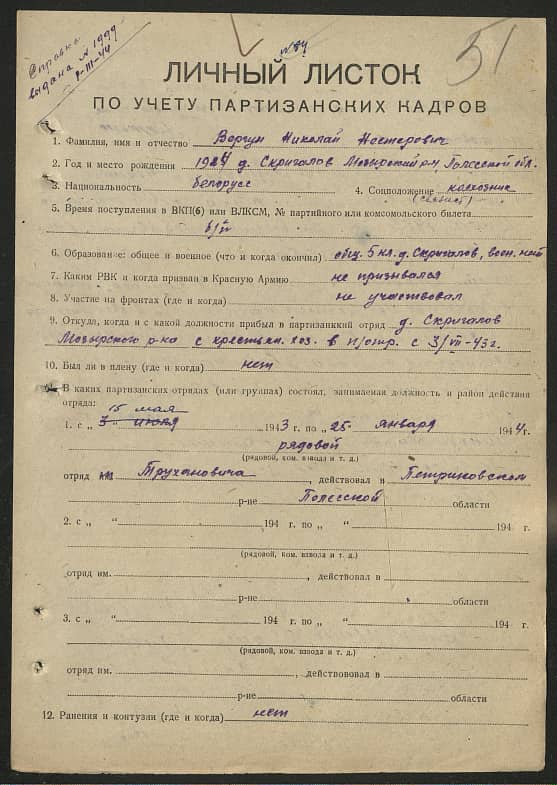 Справка
выдана № 1999
9-III-44
51
ЛИЧНЫЙ ЛИСТОК
ПО УЧЕТУ ПАРТИЗАНСКИХ КАДРОВ
1. Фамилия, имя и отчество Вергун Николай Нестерович
2. Год и место рождения 1924 д. Скригалов Мозырский р-н, Полесской обл.
3. Национальность белорусс 4. Соцположение колхозник
5. Время поступления в ВКП(б) или ВЛКСМ, № партийного или комсомольского билета
б/п
6. Образование: общее и военное (что и когда окончил) общ. 5 кл. д. Скригалов, воен. нет
7. Каким РВК и когда призван в Красную Армию не призывался
8. Участие на фронтах (где и когда) не участвовал
9. Откуда, когда и с какой должности прибыл в партизанский отряд д. Скригалов
Мозырского р-на с крестьян. хоз. в п/отр. с 3/VII-43 г.
10. Был ли в плену (где и когда) нет
11. В каких партизанских отрядах (или группах) состоял, занимаемая должность и район действия
отряда: 15 мая
1. с „ 3 “ июня 1943 г. по „ 25 “ января 1944 г.
рядовой
(рядовой, ком. взвода и т. д.)
отряд им. Трухановича, действовал в Петриковском
р-не Полесской области
2. с „ “ 194 г. по „ “ 194 г.
(рядовой, ком. взвода и т. д.)
отряд им. , действовал в
р-не области
3. с „ “ 194 г. по „ “ 194 г.
(рядовой, ком. взвода и т. д.)
отряд им. , действововал в
р-не области
12. Ранения и контузии (где и когда) нет